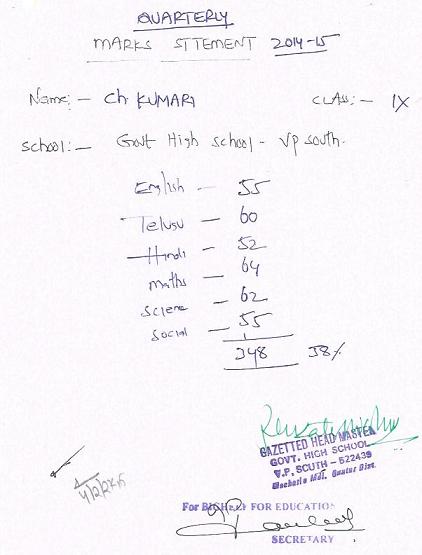 QUARTERLY
MARKS STTEMENT 2014-15
Name:- Ch KUMARI CLASS:- IX
School:- Govt High school - Vp south.
English - 55
Telusu - 60
Hindi - 52
maths - 64
Sciene - 62
Social - 55
348 58%
GAZETTED HEAD MASTER
GOVT. HIGH SCHOOL
V.P. SOUTH - 522439
Macherla Mdl. Guntur Dist.
4/2/2015
For FOR EDUCATION
SECRETARY